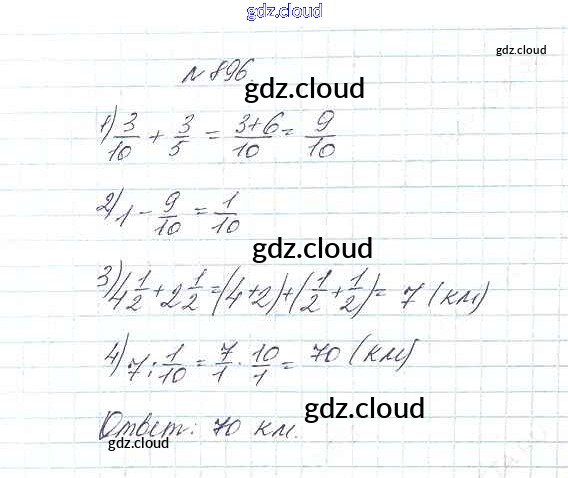 gdz.cloud
gdz.cloud
№896.
gdz.cloud
1) 3/10 + 3/5 = 3+6/10 = 9/10
2) 1 - 9/10 = 1/10
gdz.cloud
3) 4 1/2 + 2 1/2 = (4+2)+(1/2+1/2) = 7 (км)
4) 7 : 1/10 = 7/1 · 10/1 = 70 (км)
gdz.cloud
Ответ: 70 км.
gdz.cloud